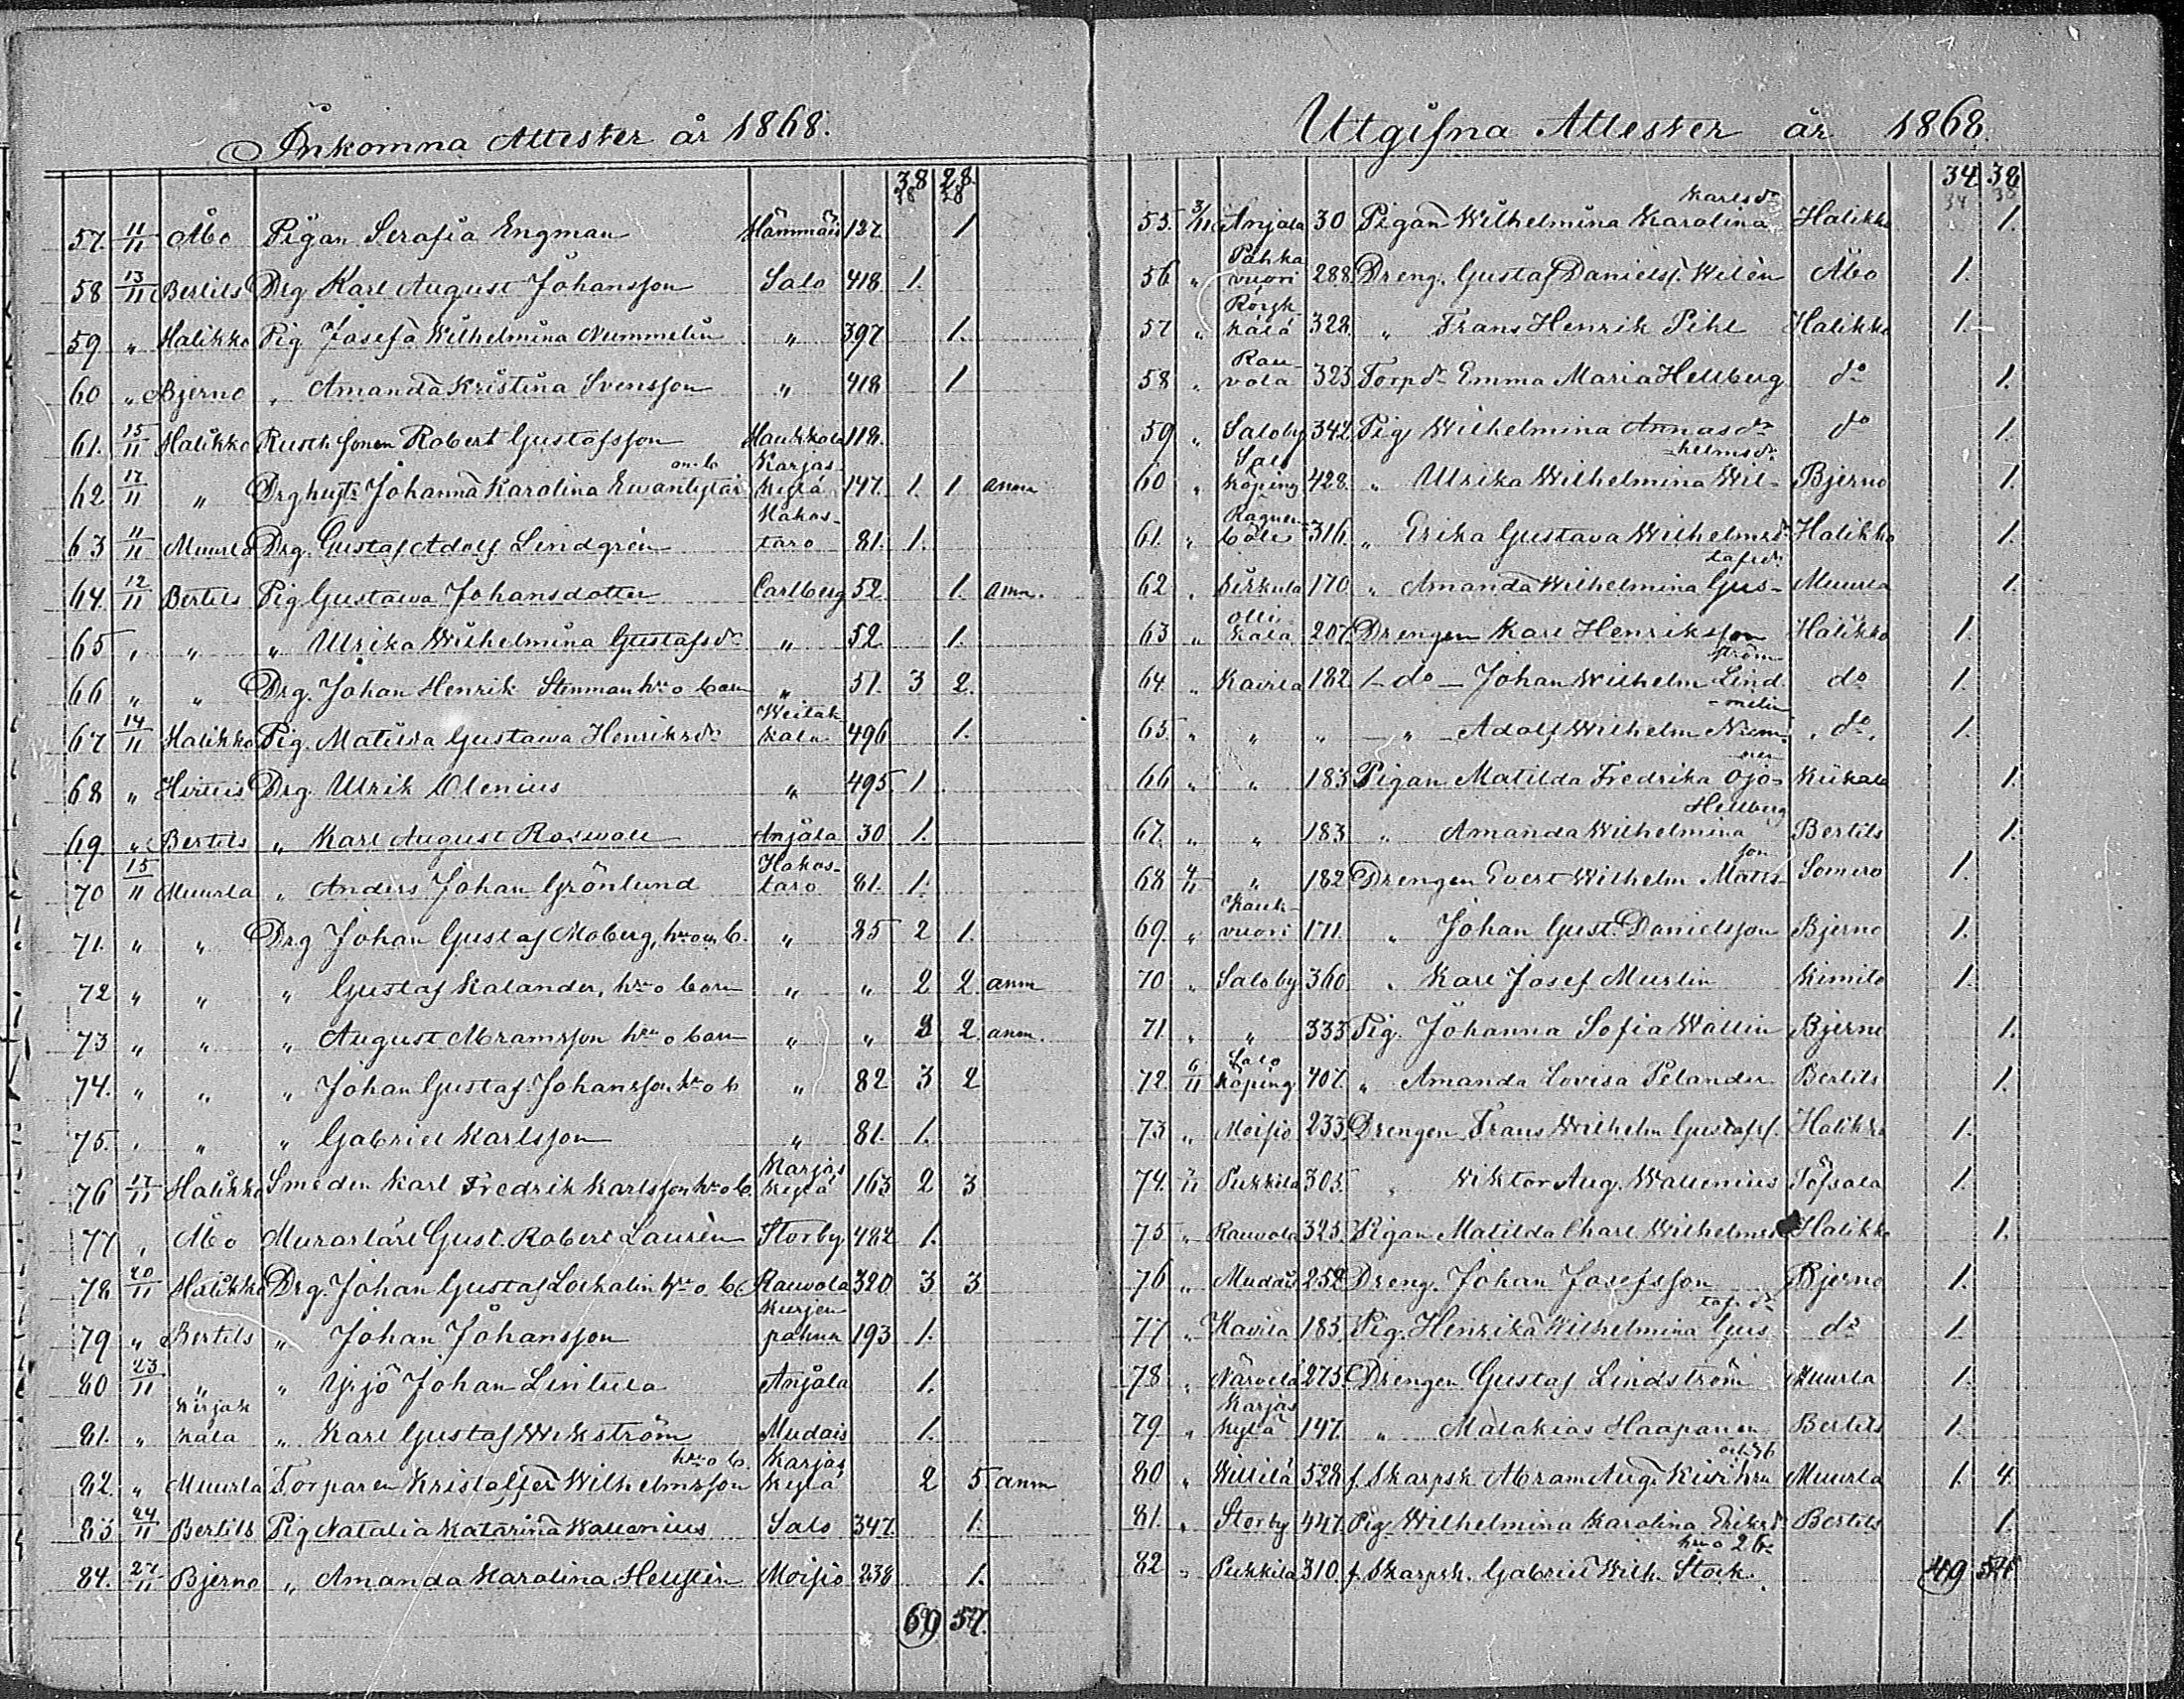 Inkomna Attester år 1868.
38 28
38 28
57. 11/11 Åbo Pigan Serafia Engman Hämmäis 127 1
58 13/11 Bertils Drg Karl August Johansson Salo 418 1.
59 " Halikko Pig Josefa Wilhelmina Nummelin " 397 1.
60 " Bjerno " Amanda Kristina Svensson " 418 1
61. 15/11 Halikko Rusth sonen Robert Gustafsson Haukkala 118.
62 17/11 " Drg hustr Johanna Karolina Ewantytär o b Karjaskylä 147. 1. 1 anm
63 11/11 Muurla Drg. Gustaf Adolf Lindgrén Hakostaro 81. 1.
64. 12/11 Bertils Pig Gustawa Johansdotter Carlberg 52. 1. anm.
65 " " " Ulrika Wilhelmina Gustafsdr " 52. 1.
66 " " Drg. Johan Henrik Stenman hru o barn " 51. 3 2.
67 14/11 Halikko Pig. Matilda Gustawa Henriksdr Weitakkala 496 1.
68 " Drg. Ulrik Olenius " 495 1.
69. " Bertils " Karl August Roswall Anjala 30 1.
70 15/11 Muurla " Anders Johan Grönlund Hakostaro 81. 1.
71. " " Drg Johan Gustaf Moberg, hru o b. " 85 2 1.
72 " " " Gustaf Kalander, hru o barn " " 2 2 anm
73 " " " August Abramsson hru o barn " " 3 2 anm.
74. " " " Johan Gustaf Johansson hr o b " 82 3 2
75. " " " Gabriel Karlsson " 81. 1.
76 17/11 Halikko Smeden Karl Fredrik Karlsson hr o b. Karjaskylä 163 2 3
77 " Åbo Murarlärl Gust. Robert Laurén Storby 482 1.
78 20/11 Halikko Drg. Johan Gustaf Lockalin hr o b. Rauvola 320 3 3
79 " Bertils " Johan Johansson Kurjenpahna 193 1.
80 23/11 " " Yrjö Johan Lintula Anjala 1.
81. " Kirjakkala " Karl Gustaf Wikström Mudais 1.
82. " Muurla Torparen Kristoffer Wilhelmsson hr o b. Karjaskylä 2 5 anm
83 24/11 Bertils Pig Natalia Katarina Wallenius Salo 347 1.
84. 27/11 Bjerno " Amanda Karolina Hellstén Moisio 238 1.
69 57.
Utgifna Attester år 1868.
34 38
34 38
55. 3/11 Anjala 30 Pigan Wilhelmina Karolina Karlsdr Halikko 1.
56 " Pahkavuori 288 Dreng. Gustaf Danielss. Wilén Åbo 1.
57 " kälä 322. " Frans Henrik Pihl Halikko 1.
58 " Rauvola 323 Torpdr Emma Maria Hellberg do 1.
59 " Saloby 342 Pig Wilhelmina Annasdr do 1.
60 " Salo köping 428. " Ulrika Wilhelmina Wilhelmsdr Bjerno 1.
61. " Ragnenböle 316. " Erika Gustava Wilhelmsd Halikko 1.
62 " Pirkula 170 " Amanda Wilhelmina Gustafsdr Muurla 1.
63 " Ollikala 207. Drengen Karl Henriksson Halikko 1.
64. " Kavila 182. - do - Johan Wilhelm Lindström do 1.
65 " " " " Adolf Wilhelm Nummelin do. 1.
66 " " 183 Pigan Matilda Fredrika Ojanen Kiikala 1.
67. " " 183. " Amanda Wilhelmina Hellberg Bertils 1.
68 4/11 " 182 Drengen Evert Wilhelm Mattsson Somero 1.
69. " Kaukvuori 171. " Johan Gust. Danielsson Bjerno 1.
70 " Saloby 360. " Karl Josef Murlin Kimito 1.
71. " " 333 Pig. Johanna Sofia Wallin Bjerno 1.
72. 6/11 Salo Köping 407. " Amanda Lovisa Pelander Bertils 1.
73 " Moisio 233 Drengen Frans Wilhelm Gustafss. Halikko 1.
74. 7/11 Pukkila 305. " Wiktor Aug. Wallenius Töfsala 1.
75 " Rauvola 325 Pigan Matilda Charl Wilhelmsd Halikko 1.
76 " Mudais 252 Dreng. Johan Josefsson Bjerno 1.
77 " Kavila 185. Pig. Henrika Wilhelmina Gustafsdr do 1.
78 " Närvilä 275. Drengen Gustaf Lindström Muurla 1.
79 " Karjaskylä 147. " Malakias Haapanen Bertils 1.
80 " Willilä 528 f. Skarpsk. Abram Aug. Kivi hru o b Muurla 1. 4.
81. " Storby 447. Pig. Wilhelmina Karolina Eriksd. Bertils 1.
82 " Pukkila 310 f. Skarpsk. Gabriel Wilh. Stark. hru o 2 b
49